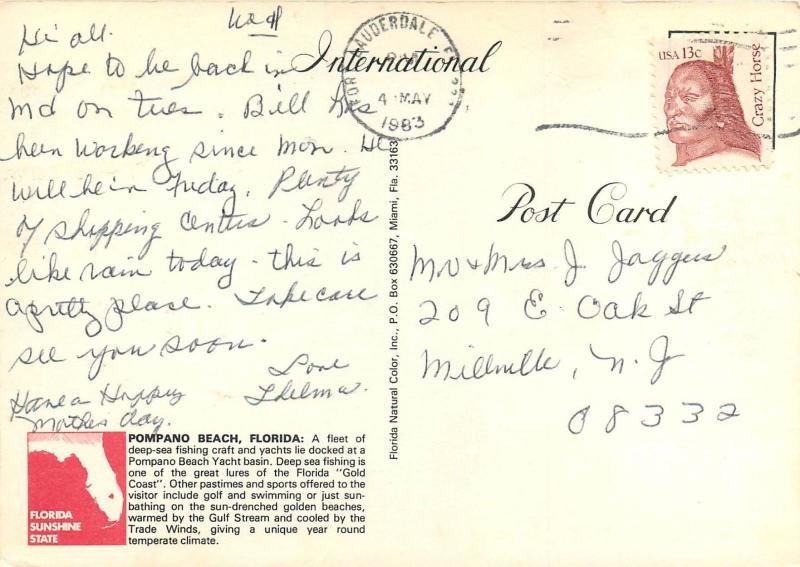 Wed
Hi all.
Hope to be back in
Md on tues. Bill has
been working since Mon. He
will be in Friday. Plenty
of shopping centers. Looks
like rain today - this is
a pretty place. Take care
see you soon.
Love
Thelma.
Have a Happy
Mothers day.
POMPANO BEACH, FLORIDA: A fleet of
deep-sea fishing craft and yachts lie docked at a
Pompano Beach Yacht basin. Deep sea fishing is
one of the great lures of the Florida "Gold
Coast". Other pastimes and sports offered to the
visitor include golf and swimming or just sun-
bathing on the sun-drenched golden beaches,
warmed by the Gulf Stream and cooled by the
Trade Winds, giving a unique year round
temperate climate.
FLORIDA
SUNSHINE
STATE
Florida Natural Color, Inc., P.O. Box 630667, Miami, Fla. 33163
International
Post Card
LAUDERDALE
4 MAY
1983
USA 13c
Crazy Horse
Mr & Mrs J. Jaggers
209 E. Oak St
Millville, N.J
08332